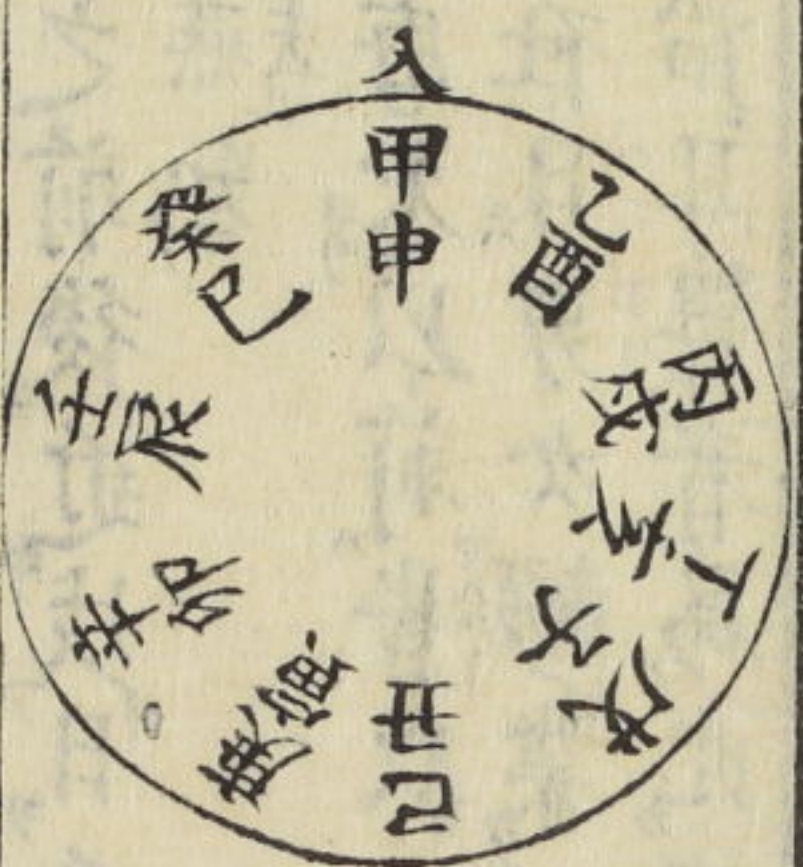 入
甲申
乙酉
丙戌
丁亥
戊子
己丑
庚寅
辛卯
壬辰
癸巳